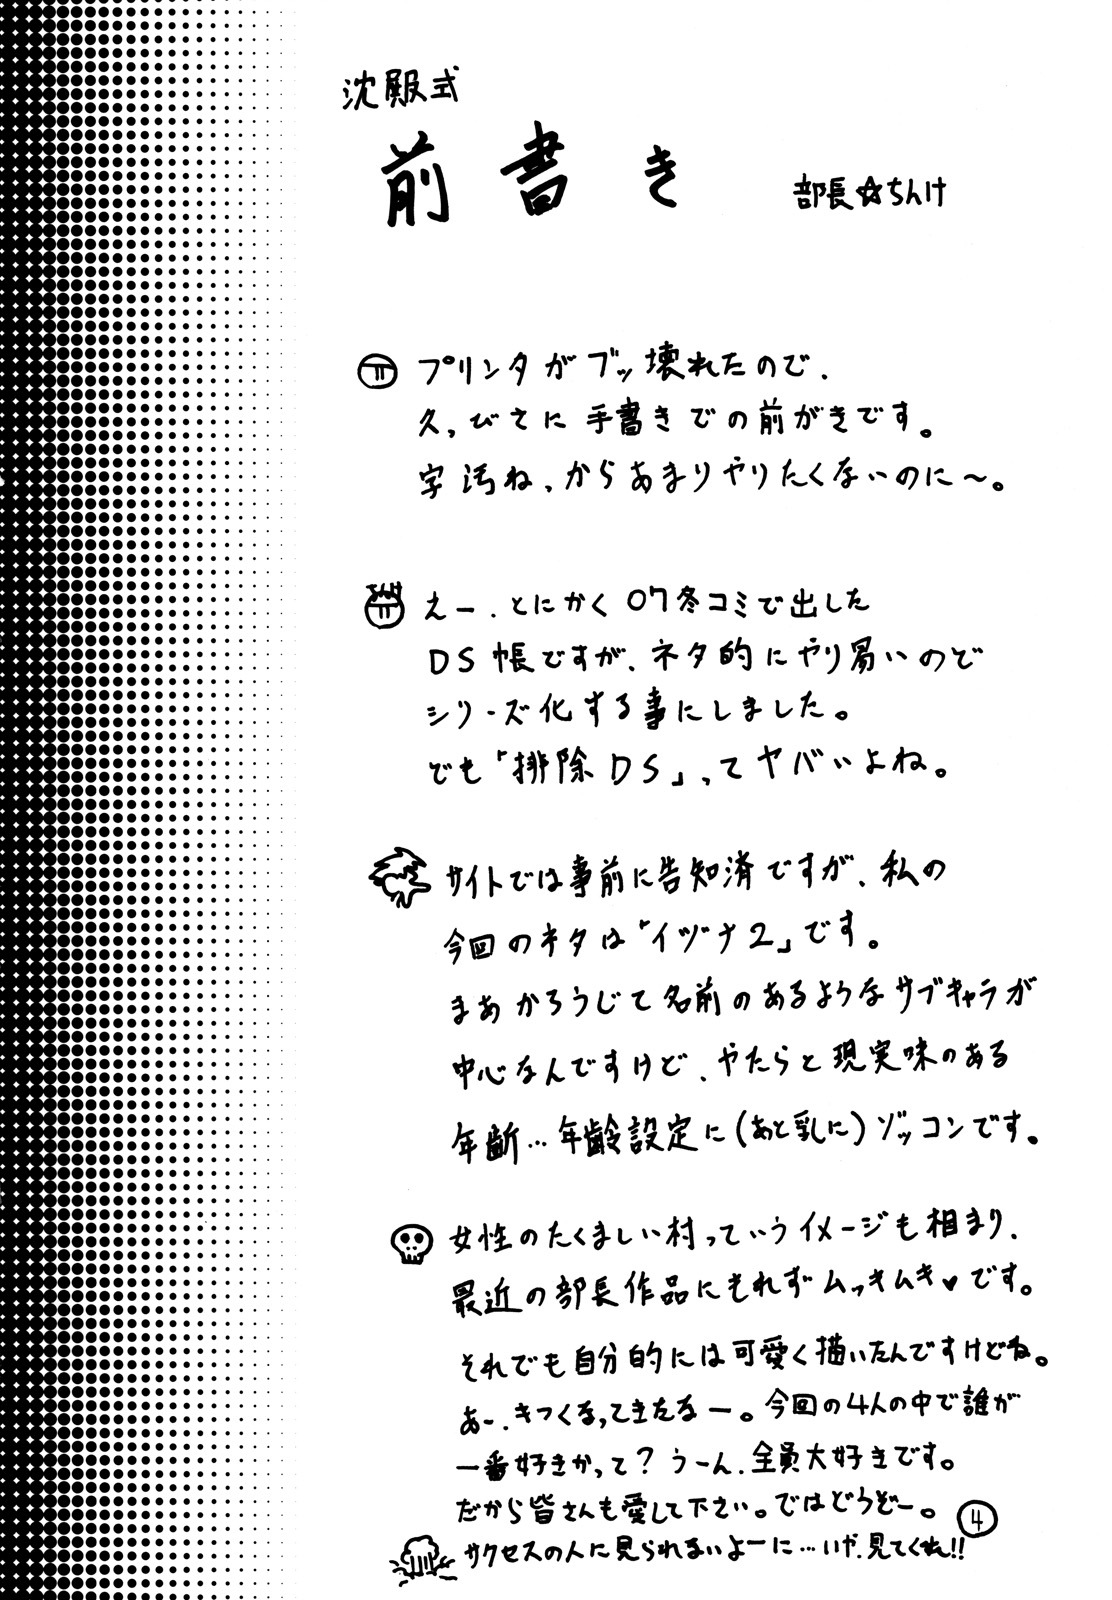 沈殿式
前書き
部長☆ちんけ
プリンタがブッ壊れたので、
久っびさに手書きでの前がきです。
字汚ねっからあまりやりたくないのに～。
えー、とにかく07冬コミで出した
DS帳ですが、ネタ的にやり易いので
シリーズ化する事にしました。
でも「排除DS」ってヤバいよね。
サイトでは事前に告知済ですが、私の
今回のネタは「イヅナ2」です。
まあかろうじて名前のあるようなサブキャラが
中心なんですけど、やたらと現実味のある
年齢…年齢設定に(あと乳に)ゾッコンです。
女性のたくましい村っていうイメージも相まり、
最近の部長作品にもれずムっキムキ♥です。
それでも自分的には可愛く描いたんですけどね。
あー、きつくなってきたなー。今回の4人の中で誰が
一番好きかって?うーん、全員大好きです。
だから皆さんも愛して下さい。ではどうぞー。
サクセスの人に見られないよーに…いや、見てくれ!!
4